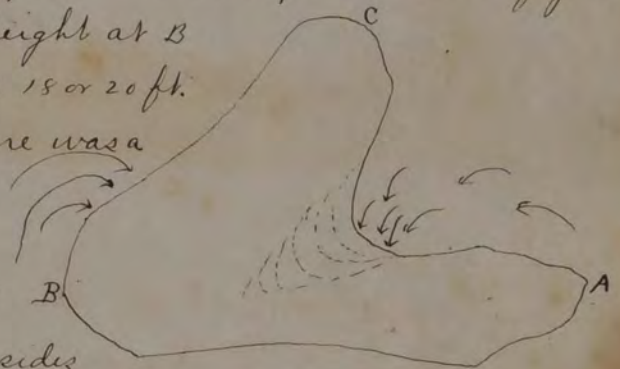 C
eight at B
18 or 20 ft.
re was a
B
A
sides